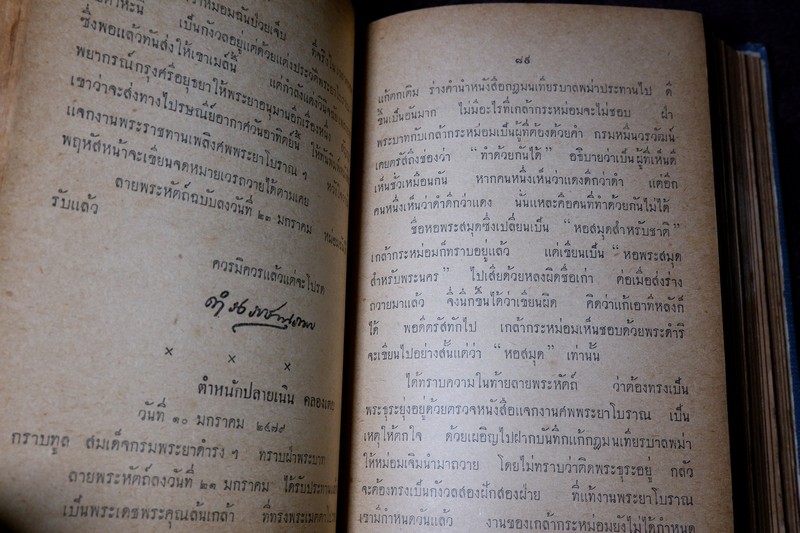 กระหม่อมฉันป่วยเจ็บ ที่จริง
เป็นกังวลอยู่แต่ด้วยแต่งประวัติพระยาโบ
ซึ่งพอแล้วทันส่งให้เขาเมล์นี้ แต่กำลังแต่ง
พยากรณ์กรุงศรีอยุธยาให้พระยาอนุมานอีกเรื่องหนึ่ง
เขาว่าจะส่งทางไปรษณีย์อากาศวันอาทิตย์นี้ ให้ทัน
แจกงานพระราชทานเพลิงศพพระยาโบราณ ฯ
พฤหัสหน้าจะเขียนจดหมายเวรถวายได้ตามเคย
ลายพระหัตถ์ฉบับลงวันที่ ๒๓ มกราคม หม่อมฉัน
รับแล้ว
ควรมิควรแล้วแต่จะโปรด
ดำรงราชานุภาพ
× × ×
ตำหนักปลายเนิน คลองเตย
วันที่ ๑๐ มกราคม ๒๔๗๙
กราบทูล สมเด็จกรมพระยาดำรง ฯ ทราบฝ่าพระบาท
ลายพระหัตถ์ลงวันที่ ๒๑ มกราคม ได้รับประทาน
เป็นพระเดชพระคุณล้นเกล้า ที่ทรงพระเมตตา
๘๙
แก้ตกเติม ร่างคำนำหนังสือกฎมนเทียรบาลพม่าประทานไป ดี
ขึ้นเป็นอันมาก ไม่มีอะไรที่เกล้ากระหม่อมจะไม่ชอบ ฝ่า
พระบาทกับเกล้ากระหม่อมเป็นผู้ที่ต้องด้วยคำ กรมหมื่นวรวัฒน์
เคยตรัสถึงช่องว่า “ทำด้วยกันได้” อธิบายว่าเป็นผู้ที่เห็นดี
เห็นชั่วเหมือนกัน หากคนหนึ่งเห็นว่าแดงดีกว่าดำ แต่อีก
คนหนึ่งเห็นว่าดำดีกว่าแดง นั่นแหละคือคนที่ทำด้วยกันไม่ได้
ชื่อหอพระสมุดซึ่งเปลี่ยนเป็น “หอสมุดสำหรับชาติ”
เกล้ากระหม่อมก็ทราบอยู่แล้ว แต่เขียนเป็น “หอพระสมุด
สำหรับพระนคร” ไปเสียด้วยหลงผิดชื่อเก่า ต่อเมื่อส่งร่าง
ถวายมาแล้ว จึ่งนึกขึ้นได้ว่าเขียนผิด คิดว่าแก้เอาทีหลังก็
ได้ พอดีตรัสทักไป เกล้ากระหม่อมเห็นชอบด้วยพระดำริ
จะเขียนไปอย่างสั้นแต่ว่า “หอสมุด” เท่านั้น
ได้ทราบความในท้ายลายพระหัตถ์ ว่าต้องทรงเป็น
พระธุระยุ่งอยู่ด้วยตรวจหนังสือแจกงานศพพระยาโบราณ เป็น
เหตุให้ตกใจ ด้วยเผอิญไปฝากบันทึกแก้กฎมนเทียรบาลพม่า
ให้หม่อมเจิมนำมาถวาย โดยไม่ทราบว่าติดพระธุระอยู่ กลัว
จะต้องทรงเป็นกังวลสองฝักสองฝ่าย ที่แท้งานพระยาโบราณ
เขามีกำหนดวันแล้ว งานของเกล้ากระหม่อมยังไม่ได้กำหนด